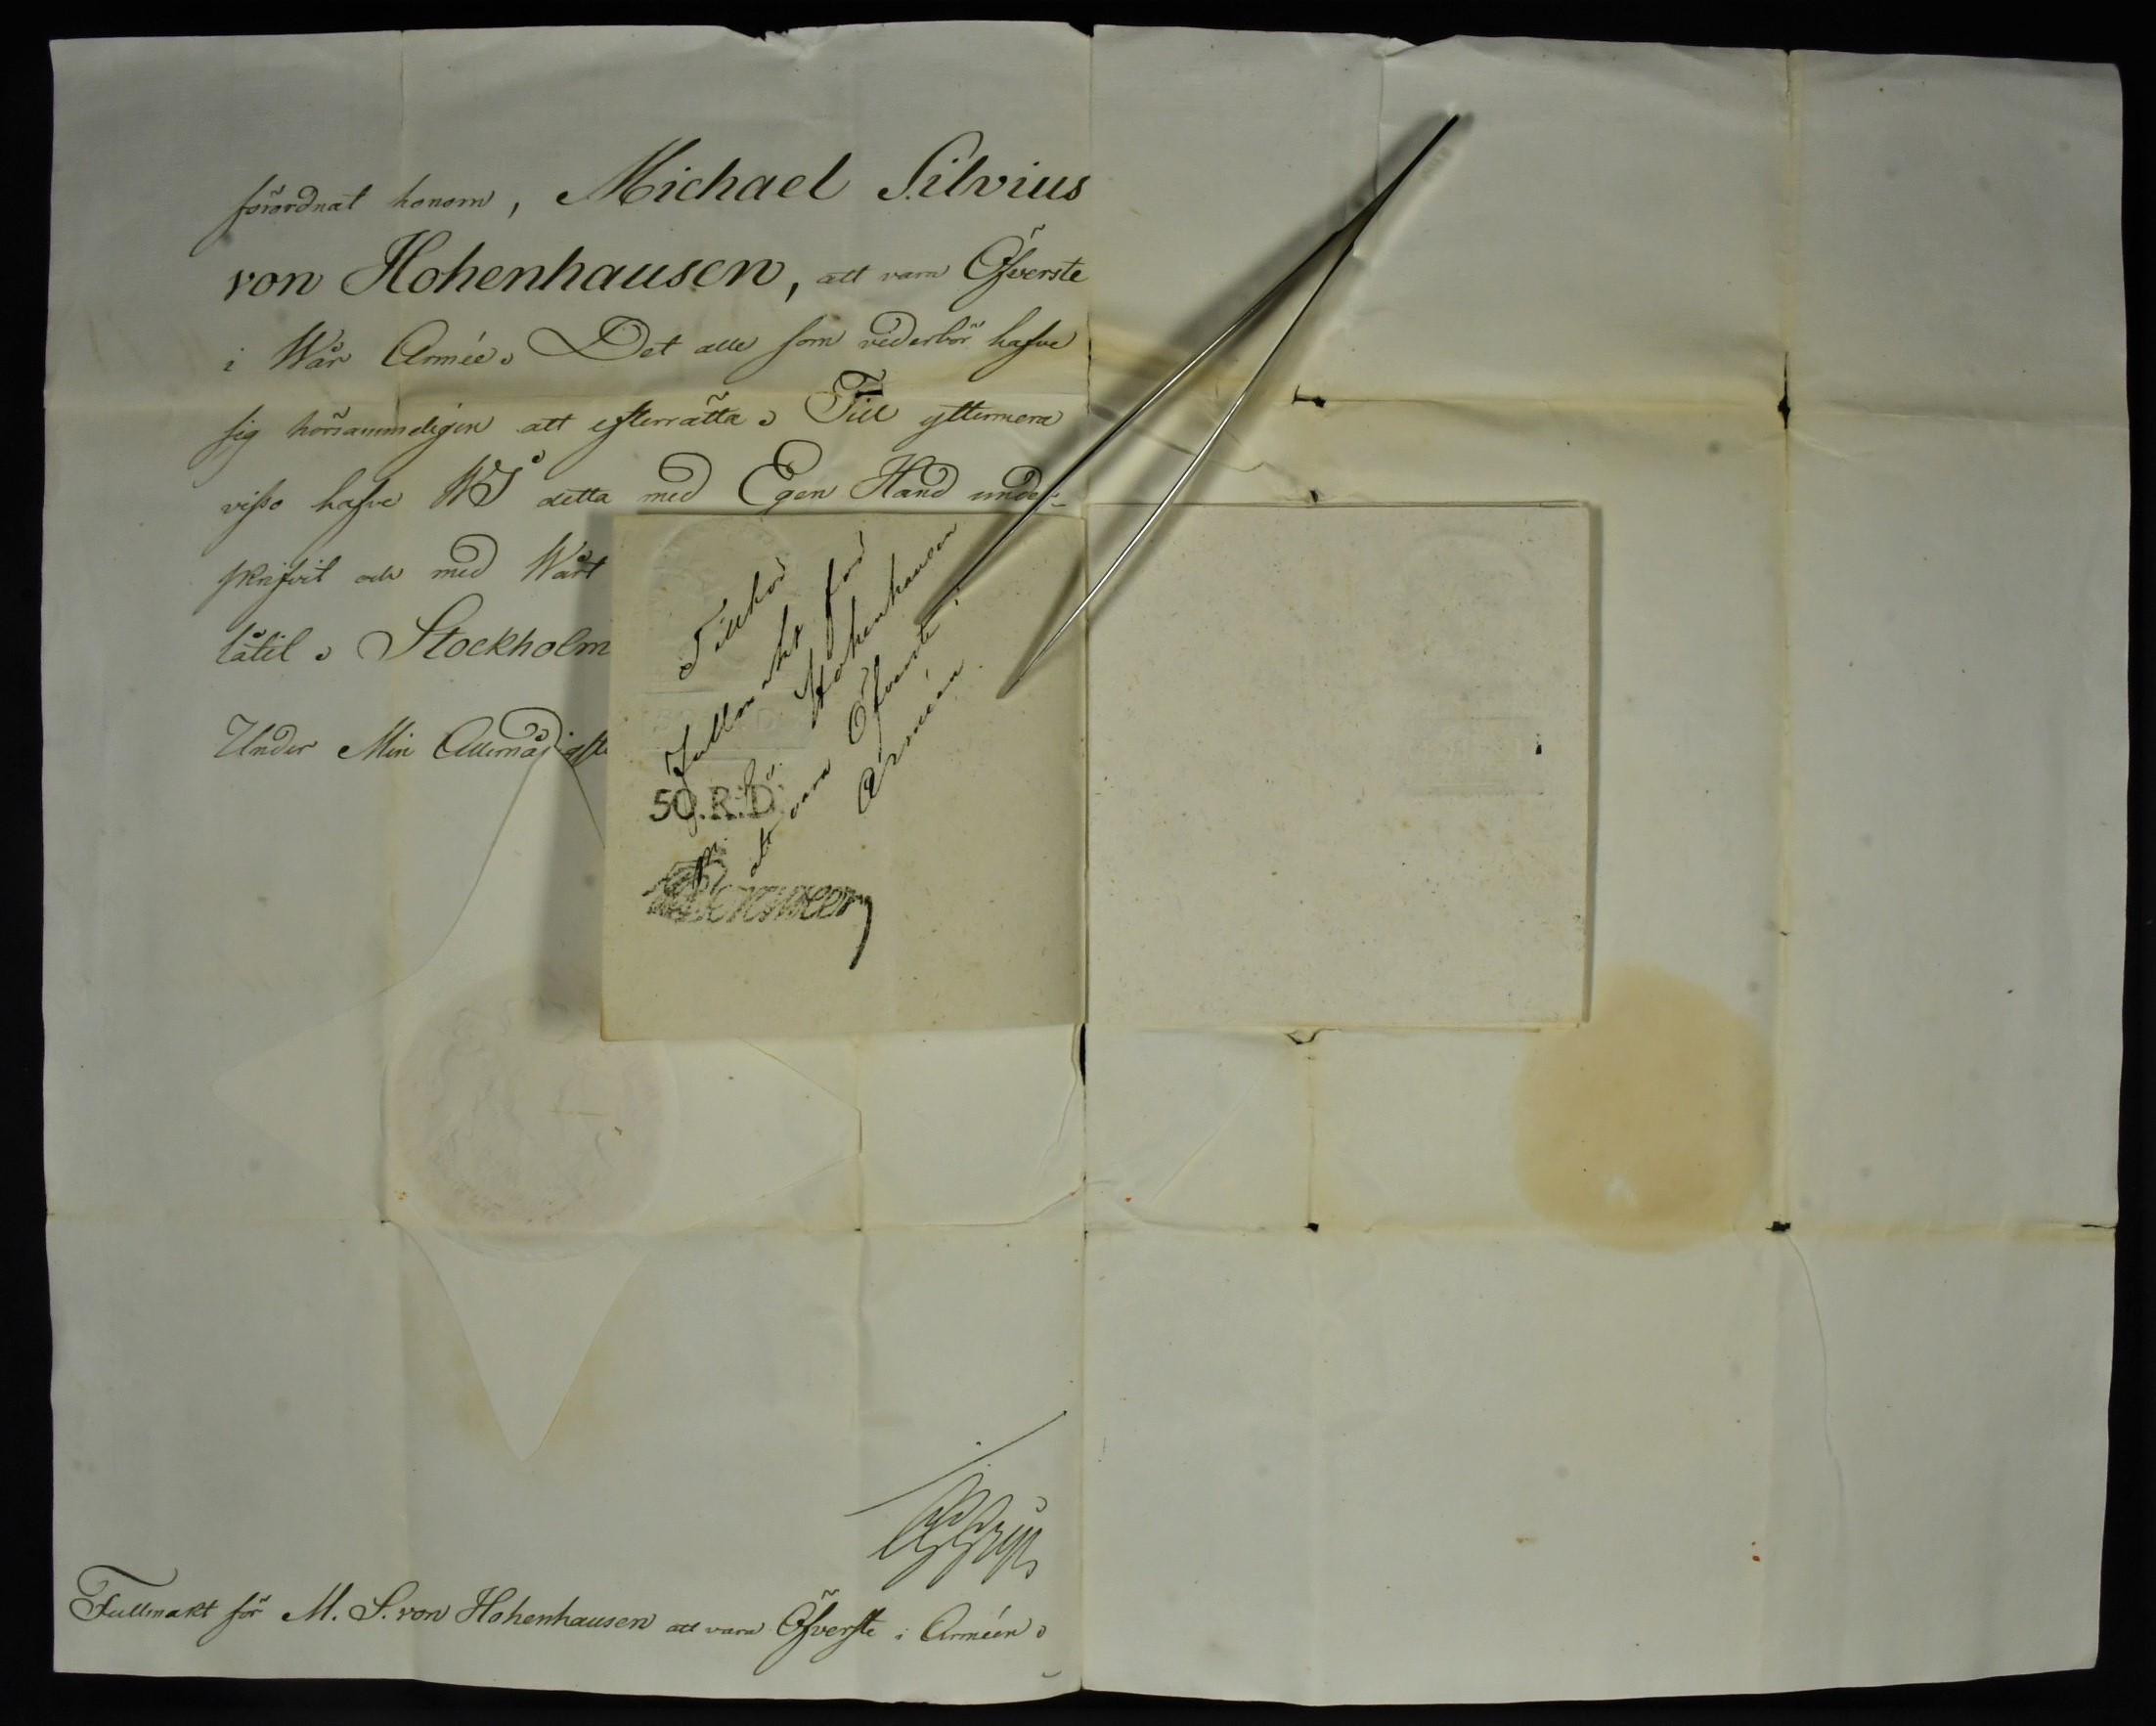 förordnat honom, Michael Silvius
von Hohenhausen, att vara Öfverste
i Wår Armée. Det alle som vederbör hafve
sig hörsammeligen att efterrätta. Till yttermera
visso hafve WJ detta med Egen Hand under-
skrifvit och med Wårt
låtit. Stockholm
Under Min Allernådigste
Tillhör
Fullmakt för
Hohenhausen
att vara Öfverste i
Arméen.
50.R:D
Fullmakt för M. S. von Hohenhausen att vara Öfverste i Arméen.